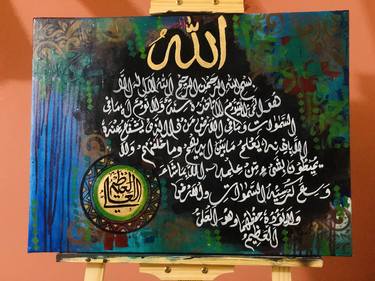 الله
بسم الله الرحمن الرحيم الله لا اله الا
هو الحي القيوم لا تاخذه سنة ولا نوم له ما في
السموات وما في الارض من ذا الذي يشفع عنده
الا باذنه يعلم ما بين ايديهم وما خلفهم ولا
يحيطون بشيء من علمه الا بما شاء
وسع كرسيه السموات والارض
ولا يؤده حفظهما وهو العلي
العظيم
العلي العظيم